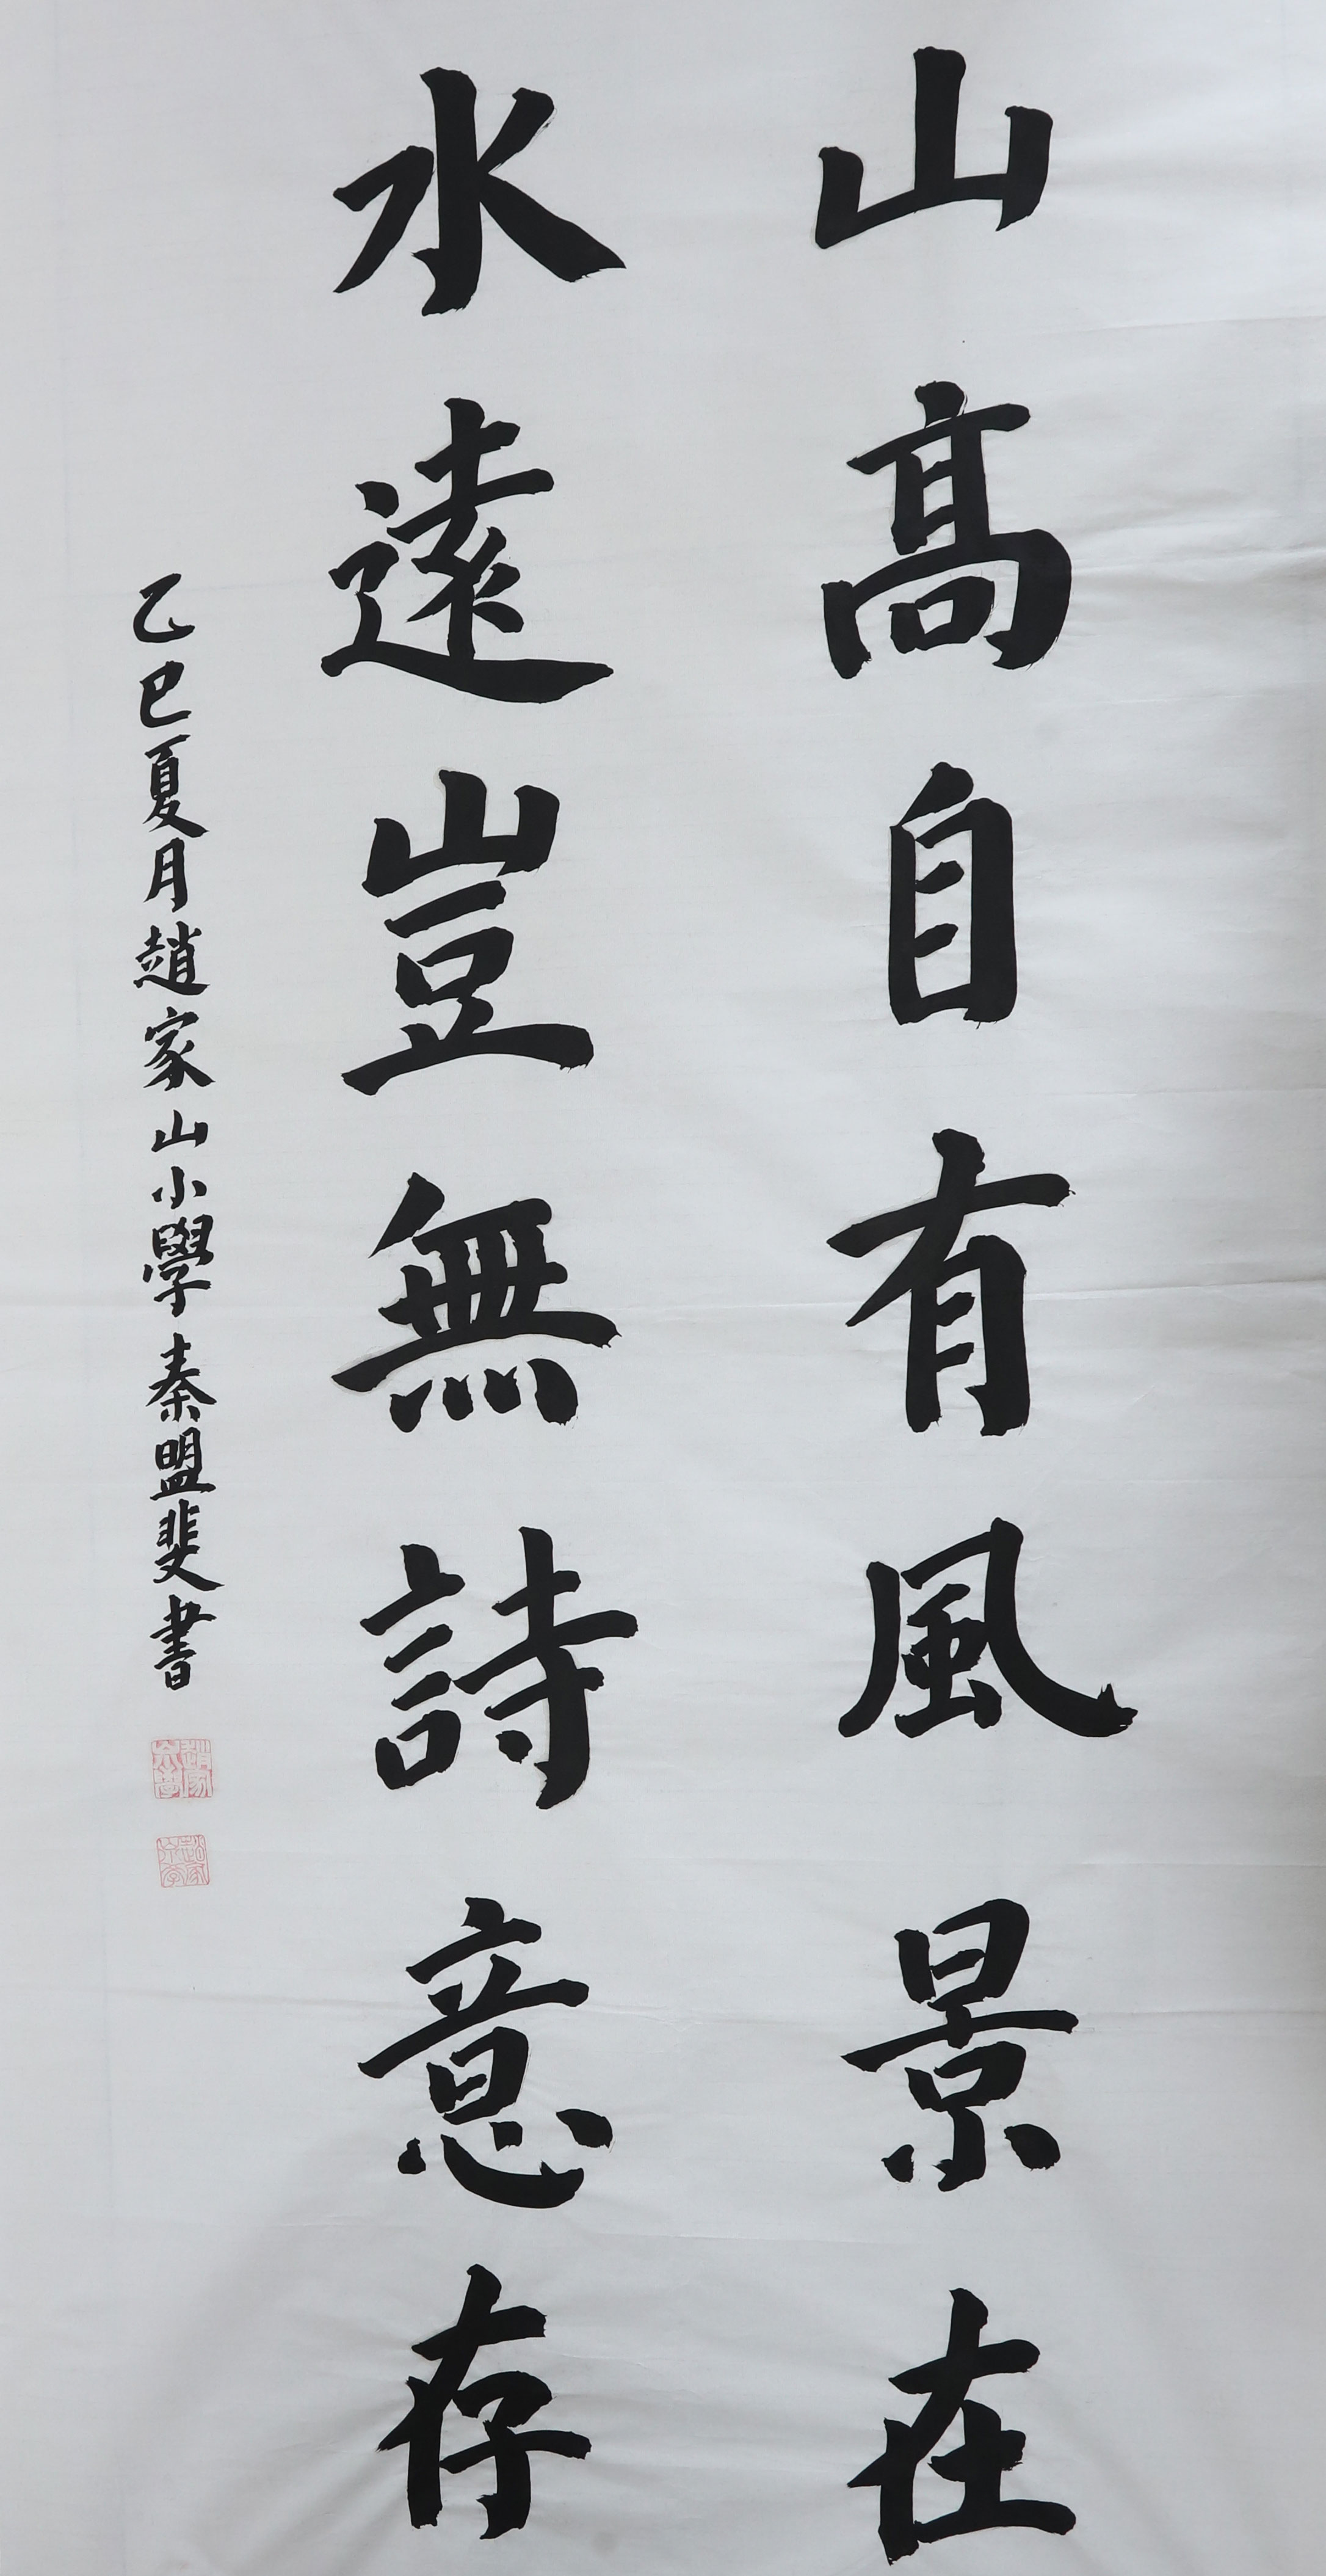 山高自有風景在
水遠豈無詩意存
乙巳夏月趙家山小學秦盟斐書